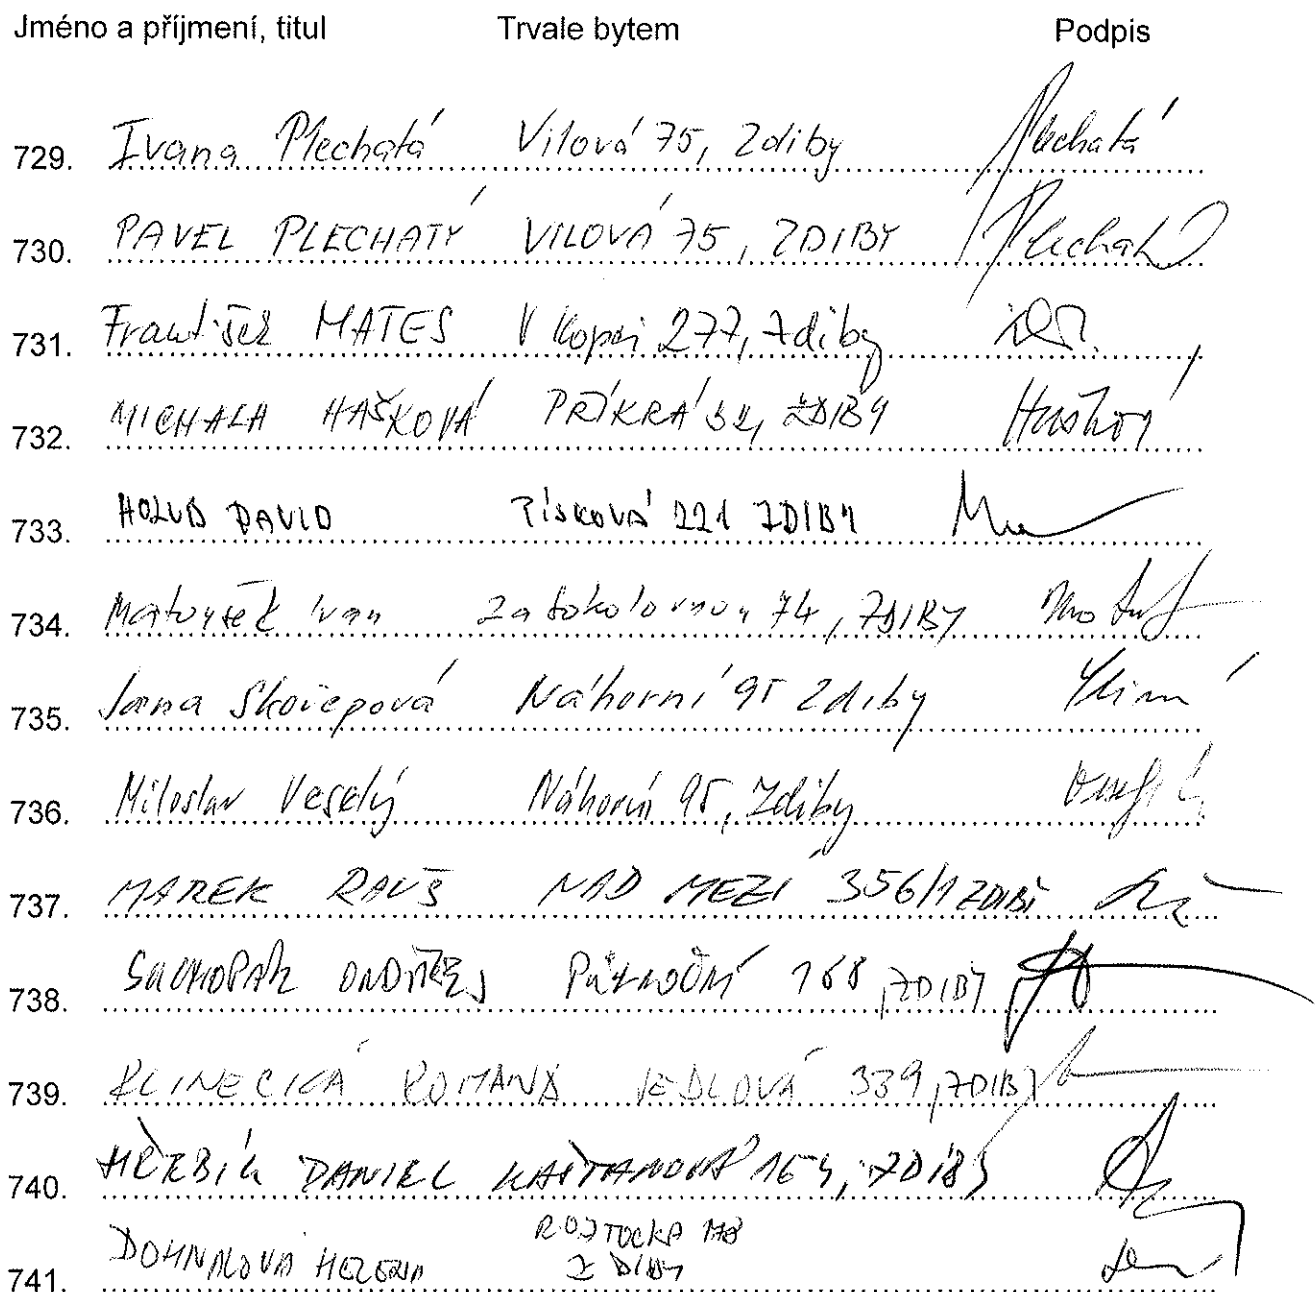 Jméno a příjmení, titul Trvale bytem Podpis
729. Ivana Plechatá Vilová 75, Zdiby Plechatá
730. PAVEL PLECHATÝ VILOVÁ 75, ZDIBY
731. František MATES V Kopci 277, Zdiby
732. MICHALA HAŠKOVÁ PŘÍKRÁ 32, ZDIBY
733. HOLUB DAVID PÍSKOVÁ 221 ZDIBY
734. Matoušek Ivan Za Sokolovnou 74, ZDIBY
735. Jana Skořepová Náhorní 95 Zdiby
736. Miloslav Veselý Náhorní 95, Zdiby
737. MAREK RAUŠ NAD MEZÍ 356/1 ZDIBY
738. ONDŘEJ 168, ZDIBY
739. KLINECKÁ ROMANA JEDLOVÁ 339, ZDIBY
740. HŘEBÍK DANIEL KAŠTANOVÁ 164, ZDIBY
741. DOHNALOVÁ HELENA ROZTOCKÁ
ZDIBY